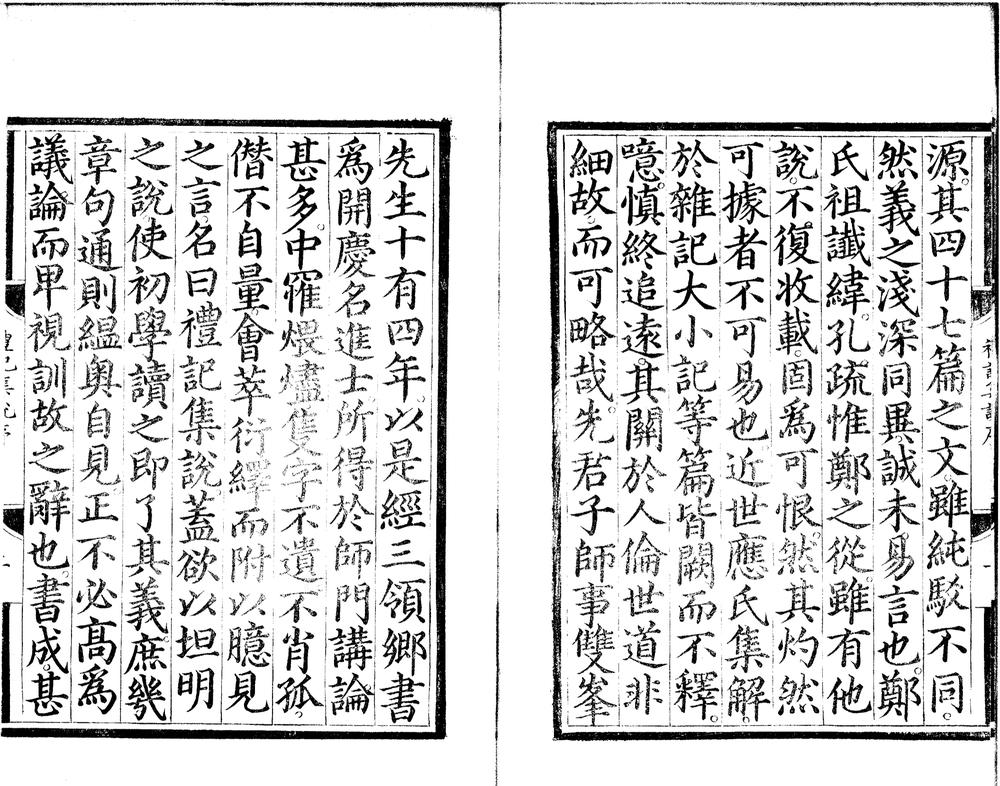 源。其四十七篇之文。雖純駁不同。
然義之淺深同異。誠未易言也。鄭
氏祖讖緯。孔疏惟鄭之從。雖有他
說。不復收載。固為可恨。然其灼然
可據者。不可易也。近世應氏集解。
於雜記大小記等篇。皆闕而不釋。
噫。慎終追遠。其關於人倫世道非
細故。而可略哉。先君子師事雙峯
先生十有四年。以是經三領鄉書
爲開慶名進士。所得於師門講論
甚多。中罹煨燼。隻字不遺。不肖孤。
僭不自量。會萃衍繹。而附以臆見
之言。名曰禮記集說。蓋欲以坦明
之說。使初學讀之。即了其義。庶幾
章句通。則縕奥自見。正不必髙爲
議論。而卑視訓故之辭也。書成。甚
禮記集說序
一